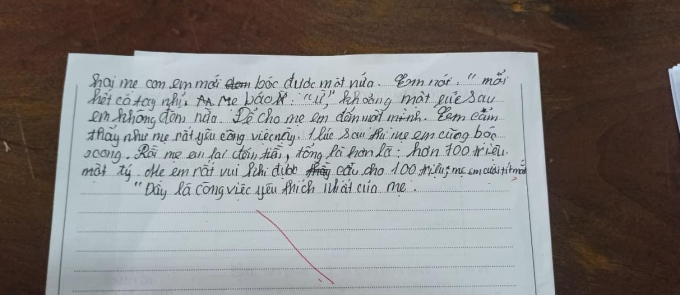 hai mẹ con em mới bóc được một nửa. Em nói: " mỏi
hết cả tay nhỉ. Mẹ bảo: "ừ," khoảng một lúc sau
em không đếm nữa. Để cho mẹ em đếm một mình. Em cảm
thấy như mẹ rất yêu công việc này. 1 lúc sau thì mẹ em cũng bóc
xong. Rồi mẹ em lại đếm tiền, tổng là hơn là: hơn 100 triệu
một tý. Mẹ em rất vui khi được cầu cho 100 triệu, mẹ em cười tít mắt
"Đây là công việc yêu thích nhất của mẹ.